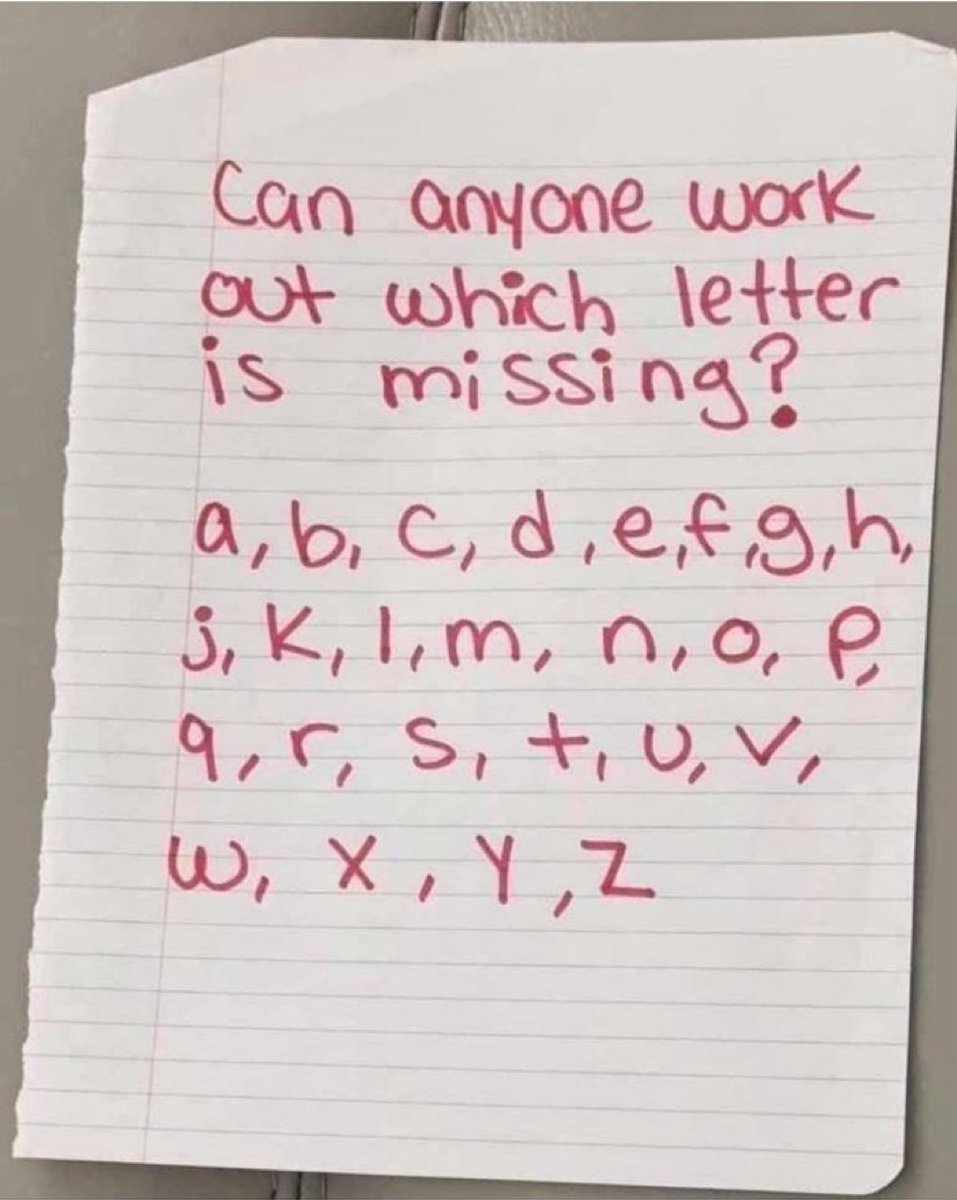 Can anyone work
out which letter
is missing?
a, b, c, d, e, f, g, h,
j, k, l, m, n, o, p,
q, r, s, t, u, v,
w, x, y, z